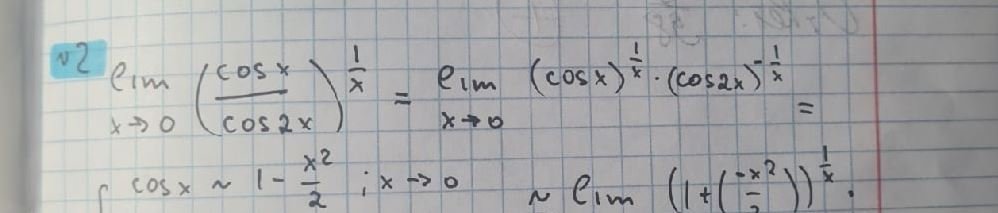 №2 lim x→0 (cos x / cos 2x)^(1/x) = lim x→0 (cos x)^(1/x) · (cos 2x)^(-1/x) =
{ cos x ~ 1 - x²/2 ; x → 0 ~ lim (1 + (-x²/2))^(1/x) ·